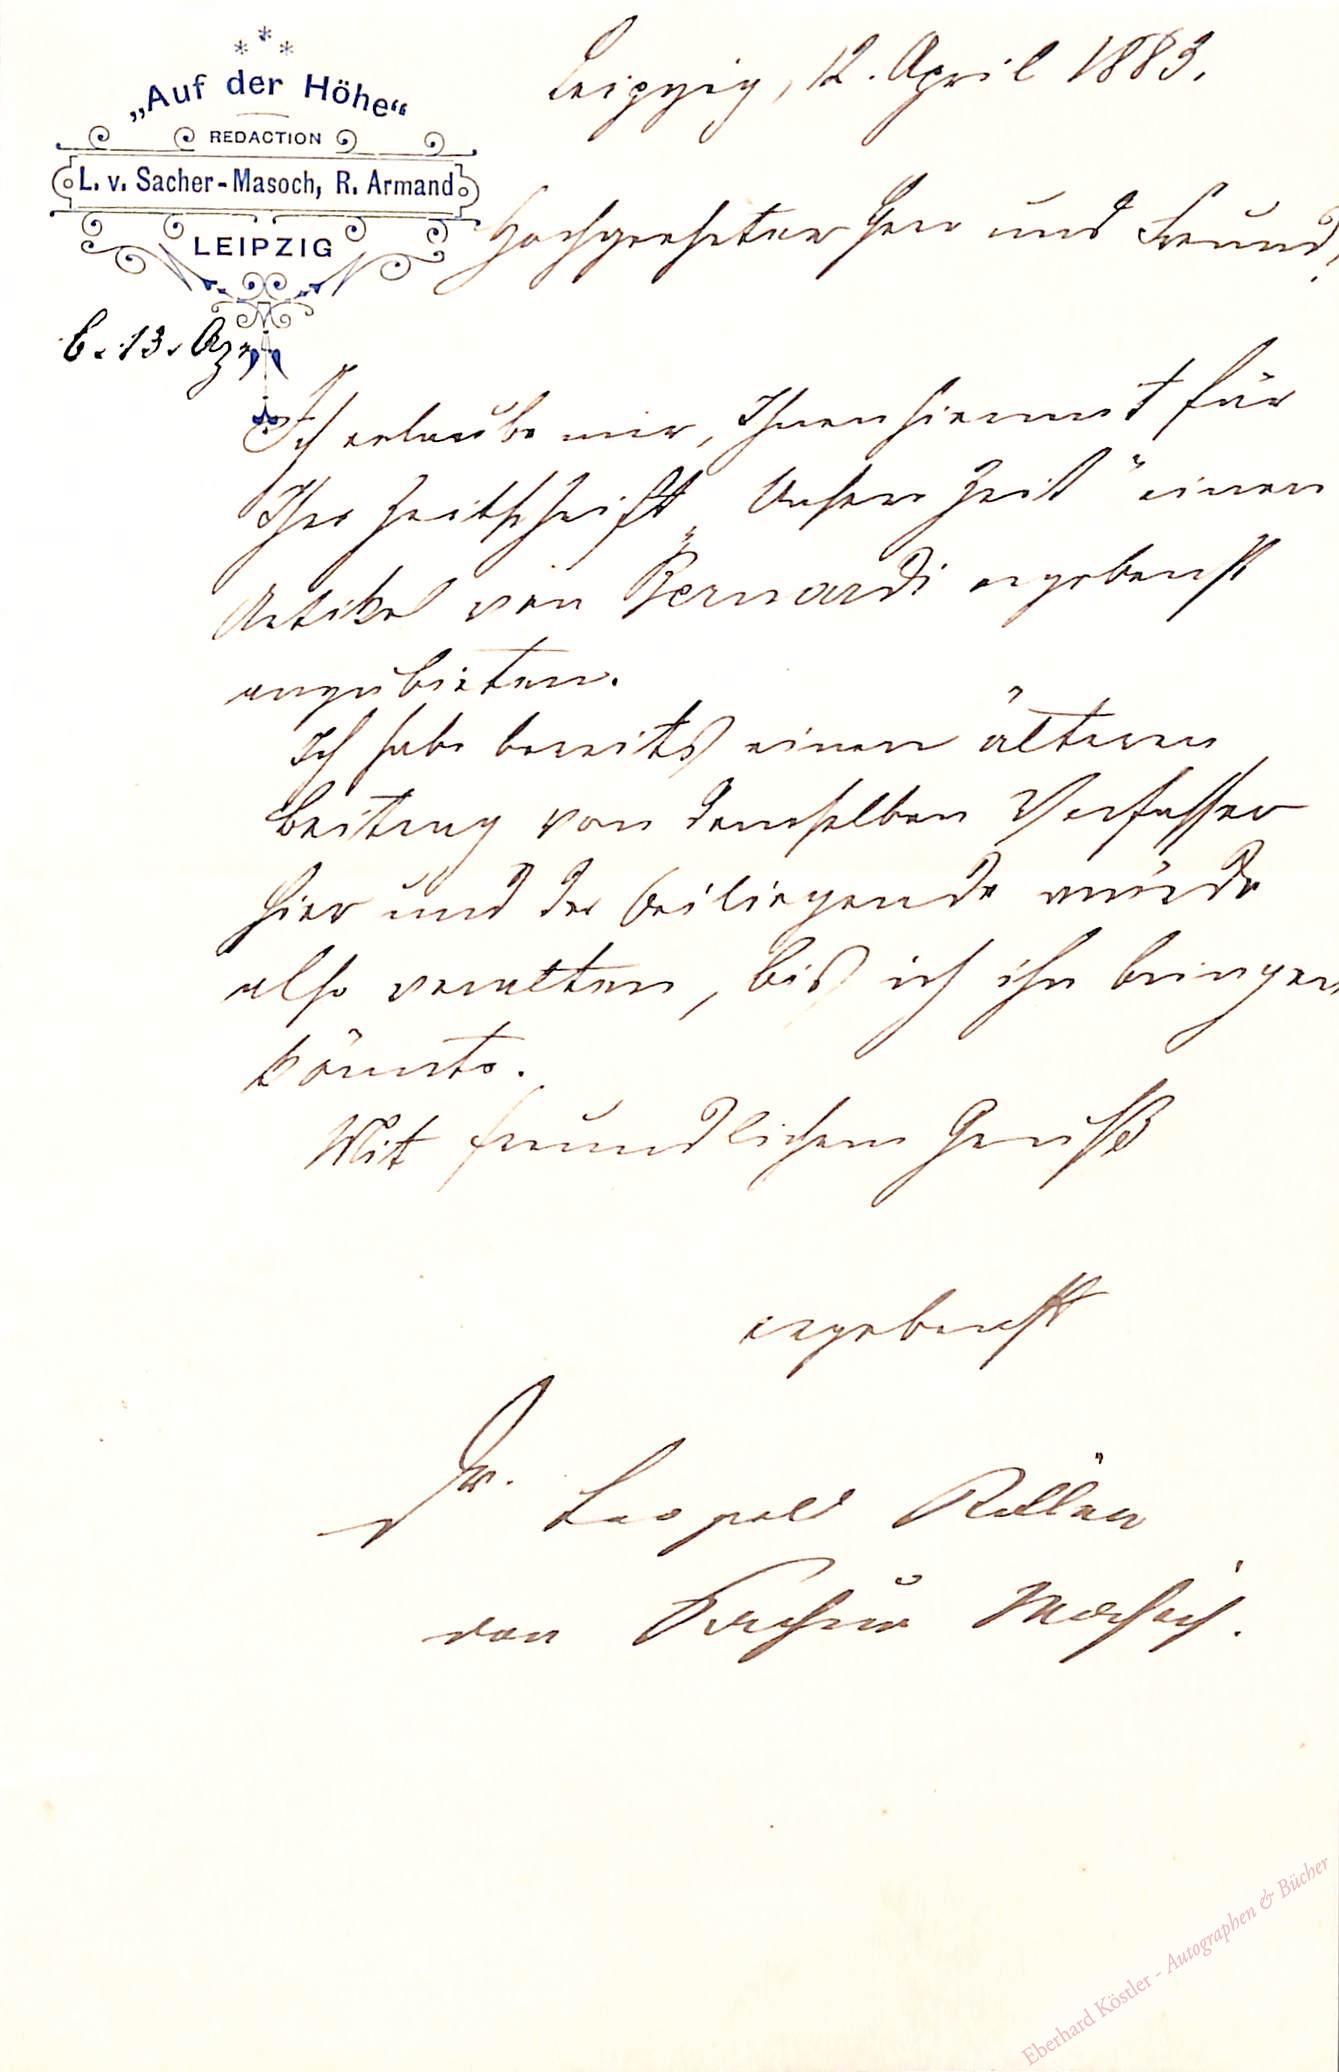 * * *
„Auf der Höhe“
REDACTION
L. v. Sacher-Masoch, R. Armand
LEIPZIG
Leipzig, 12. April 1883.
Hochgeehrter Herr und Freund!
b. 13. Ap.
Ich erlaube mir, Ihnen hiermit für
Ihre Zeitschrift „Unsere Zeit“ einen
Artikel von Bernardi ergebenst
anzubieten.
Ich habe bereits einen älteren
Beitrag von demselben Verfasser
hier und der beiliegende würde
also veralten, bis ich ihn bringen
könnte.
Mit freundlichem Gruß
ergebenst
Dr. Leopold Ritter
von Sacher Masoch.
Eberhard Köstler - Autographen & Bücher